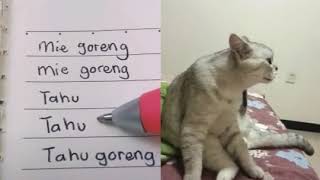 Mie goreng
mie goreng
Tahu
Tahu
Tahu goreng